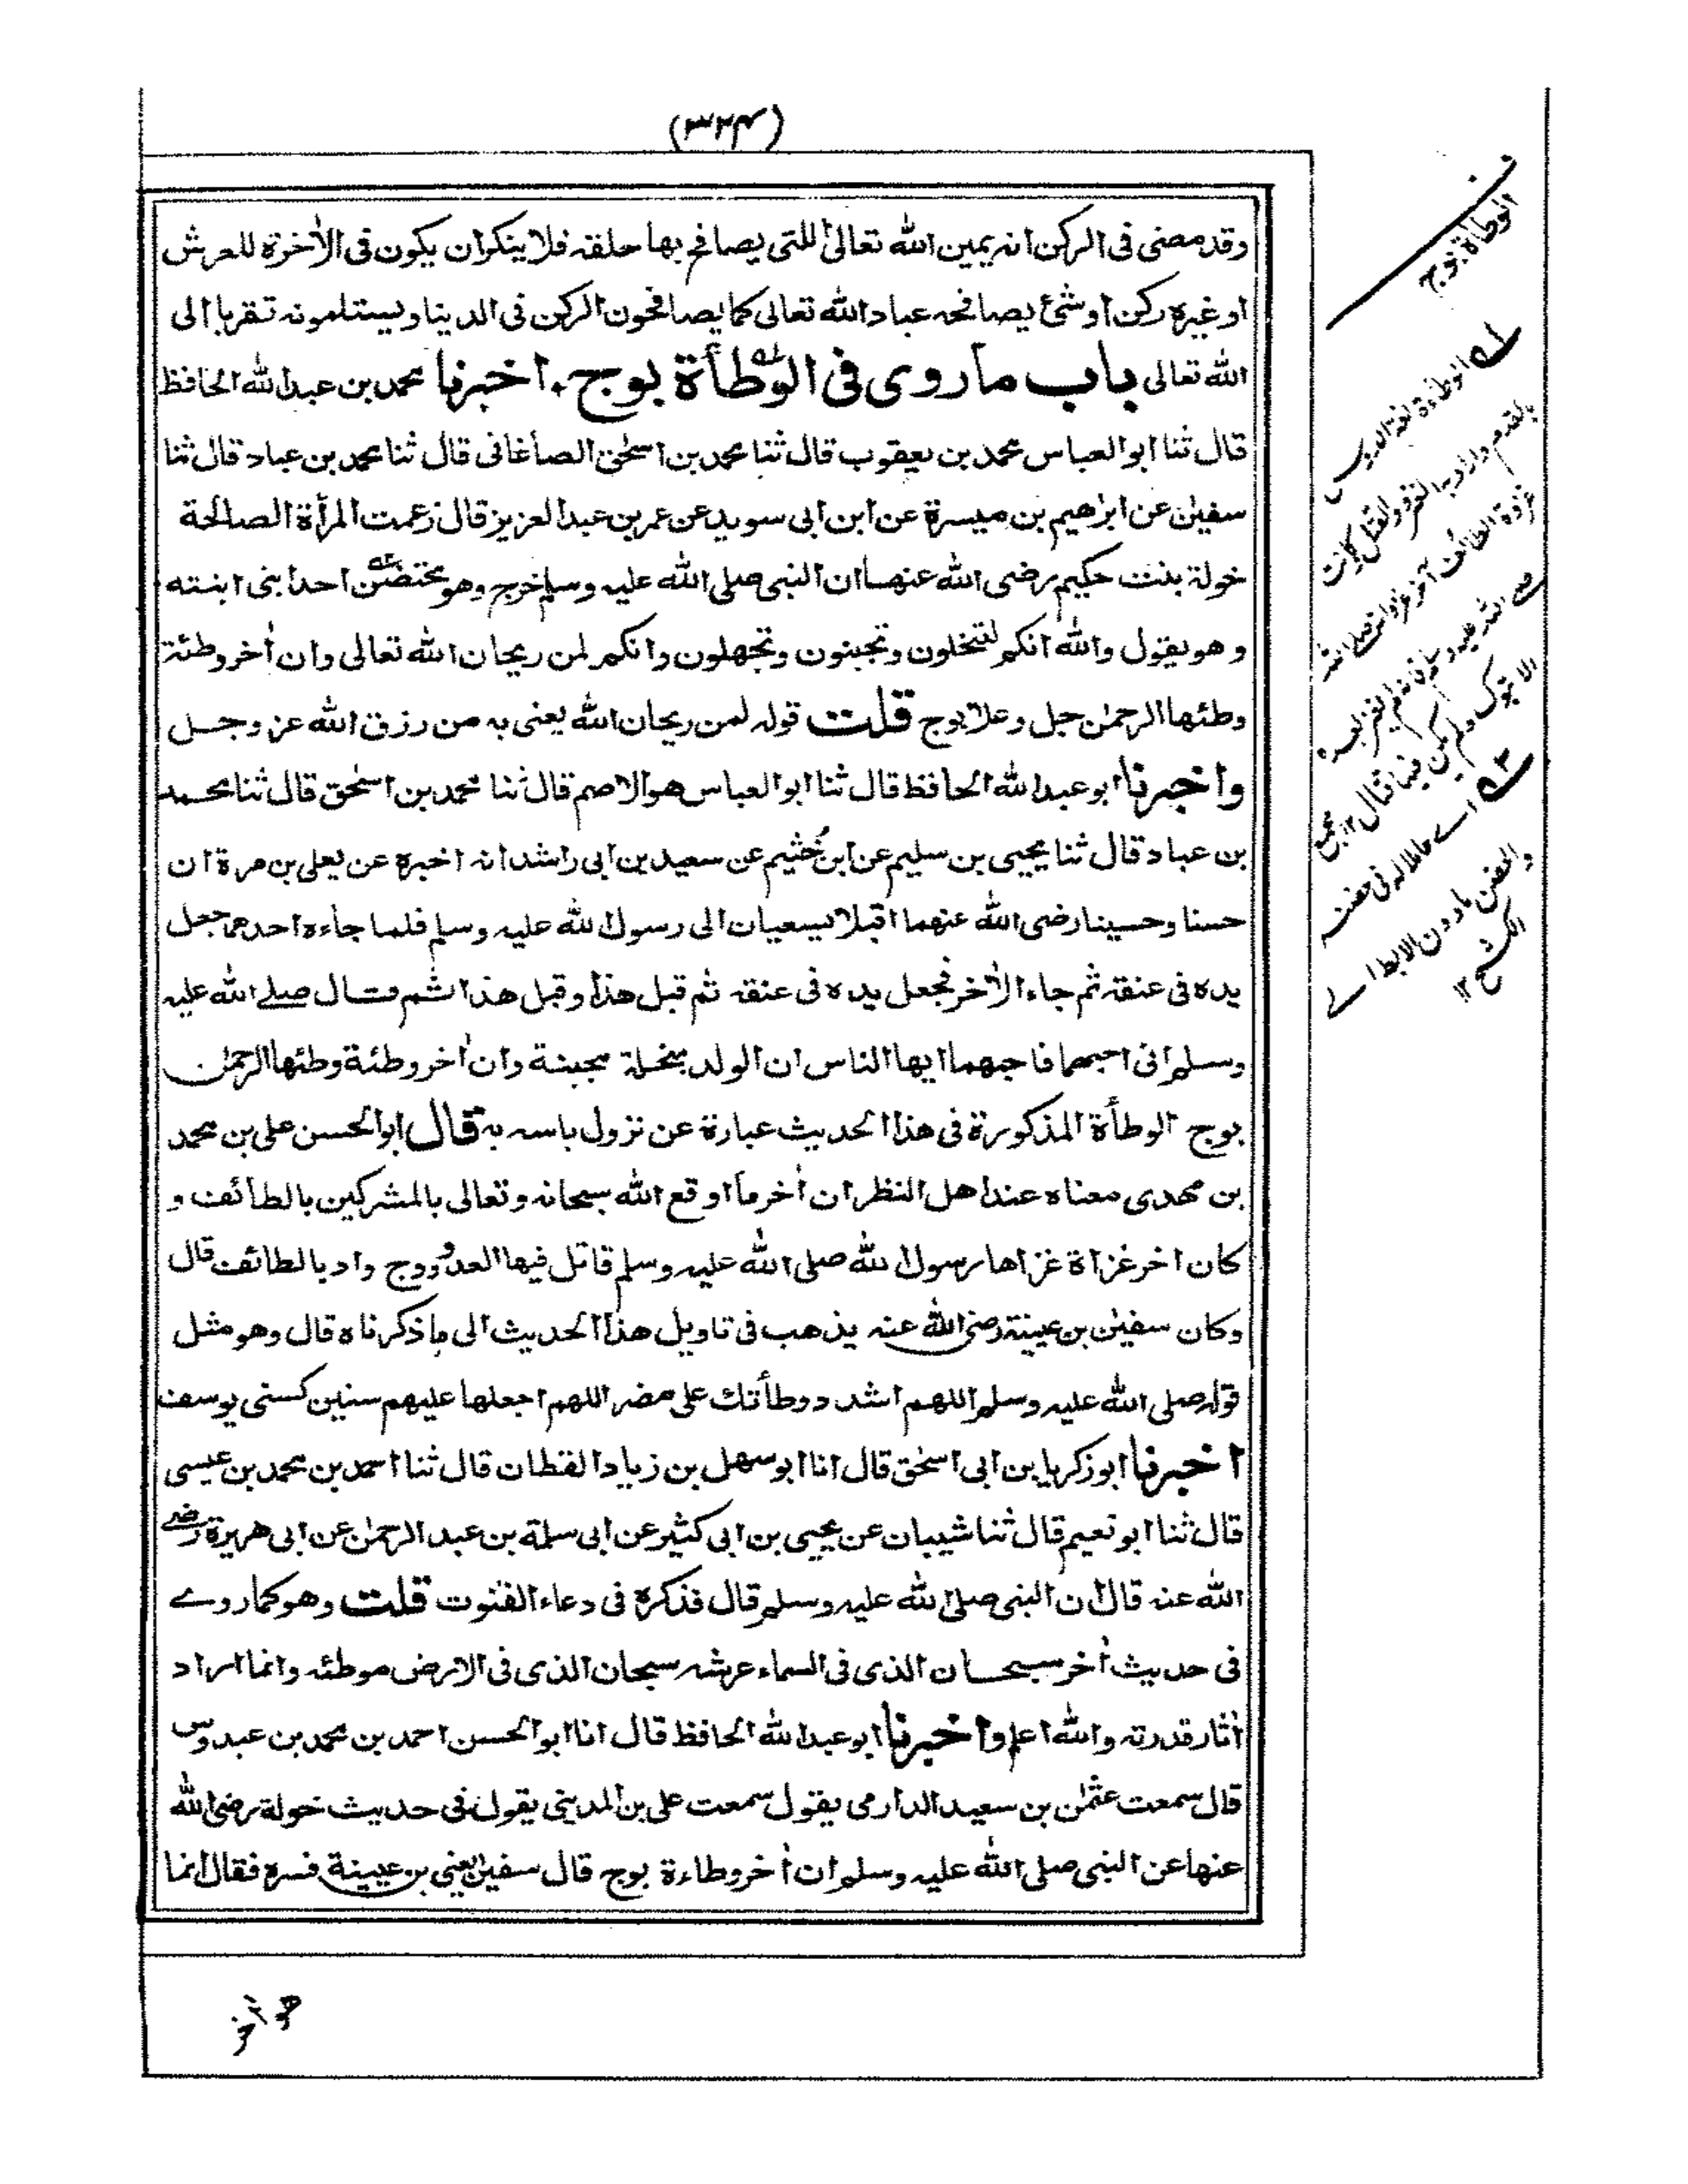 (۳۲۴)
وقد مضى فى الركن انه يمين الله تعالىٰ للتى يصافح بها حلقه فلا ينكران يكون فى الاٰخرة للعرش
او غيره ركن او شئ يصافحه عباد الله تعالى كما يصافحون الركن فى الدينا ويستلمونه تقربا الى
الله تعالى باب ما روى فى الوطأة بوج ۰ اخبرنا محمد بن عبد الله الحافظ
قال ثنا ابو العباس محمد بن يعقوب قال ثنا محمد بن اسحٰق الصاغانى قال ثنا محمد بن عباد قال ثنا
سفيٰن عن ابرٰهيم بن ميسرة عن ابن ابى سويد عن عمر بن عبد العزيز قال زعمت المرأة الصالحة
خولة بنت حكيم رضى الله عنها ان النبى صلى الله عليه وسلم خرج وهو محتضن احد ابنى ابنته
وهو يقول والله انكم لتبخلون وتجبنون وتجهلون وانكم لمن ريحان الله تعالى وان اٰخر وطئة
وطئها الرحمٰن جل وعلا بوج قلت قوله لمن ريحان الله يعنى به من رزق الله عز وجل
واخبرنا ابو عبد الله الحافظ قال ثنا ابو العباس هو الاصم قال ثنا محمد بن اسحٰق قال ثنا محمد
بن عباد قال ثنا يحيى بن سليم عن ابن خُثيم عن سعيد بن ابى راشد انه اخبره عن يعلى بن مرة ان
حسنا وحسينا رضى الله عنهما اقبلا يسعيان الى رسول الله عليه وسلم فلما جاءه احدهما جعل
يده فى عنقه ثم جاء الاٰخر فجعل يده فى عنقه ثم قبل هذا وقبل هذا ثم قال صلے الله عليه
وسلم انى احبهما فاحبهما ايها الناس ان الولد مبخلة مجبنة وان اٰخر وطئة وطئها الرحمٰن
بوج الوطأة المذكورة فى هذا الحديث عبارة عن نزول باسه به قال ابو الحسن على بن محمد
بن مهدى معناه عند اهل النظر ان اٰخر ما اوقع الله سبحانه وتعالى بالمشركين بالطائف و
كان اخر غزاة غزاها رسول الله صلى الله عليه وسلم قاتل فيها العدو ووج واد بالطائف قال
وكان سفيٰن بن عيينة رضى الله عنه يذهب فى تاويل هذا الحديث الى ما ذكرناه قال وهو مثل
قوله صلى الله عليه وسلم اللهم اشدد وطأتك على مضر اللهم اجعلها عليهم سنين كسنى يوسف
اخبرنا ابو زكريا بن ابى اسحٰق قال انا ابو سهل بن زياد القطان قال ثنا احمد بن محمد بن عيسى
قال ثنا ابو نعيم قال ثنا شيبان عن يحيى بن ابى كثير عن ابى سلمة بن عبد الرحمٰن عن ابى هريرة رضى
الله عنه قال ان النبى صلى الله عليه وسلم قال فذكره فى دعاء القنوت قلت وهو كما روے
فى حديث اٰخر سبحان الذى فى السماء عرشه سبحان الذى فى الارض موطئه وانما اراد
اٰثار قدرته والله اعلم واخبرنا ابو عبد الله الحافظ قال انا ابو الحسن احمد بن محمد بن عبدوس
قال سمعت عثمٰن بن سعيد الدارمى يقول سمعت على بن المدينى يقول فى حديث خولة رضى الله
عنها عن النبى صلى الله عليه وسلم ان اٰخر وطاءة بوج قال سفيٰن يعنى بن عيينة فسره فقال انما
الوطأة بوج
الوطاءة لغة الدوس
بالقدم واراد به الغزو والقتل وكانت
غزوة الطائف آخر غزوات صلى الله
الا تبوك ولم يكن فيها قتال ۱۲ مجمع
اے حاملا له فى حضنه
والحضن ما دون الابط الے
الكشح ۱۲
هو آخر